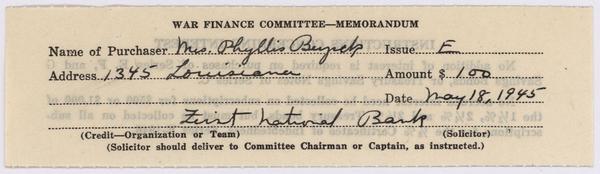 WAR FINANCE COMMITTEE—MEMORANDUM
Name of Purchaser Mrs. Phyllis Issue E
Address 1345 Louisiana Amount $ 100
Date May 18, 1945
First National Bank
(Credit—Organization or Team) (Solicitor)
(Solicitor should deliver to Committee Chairman or Captain, as instructed.)